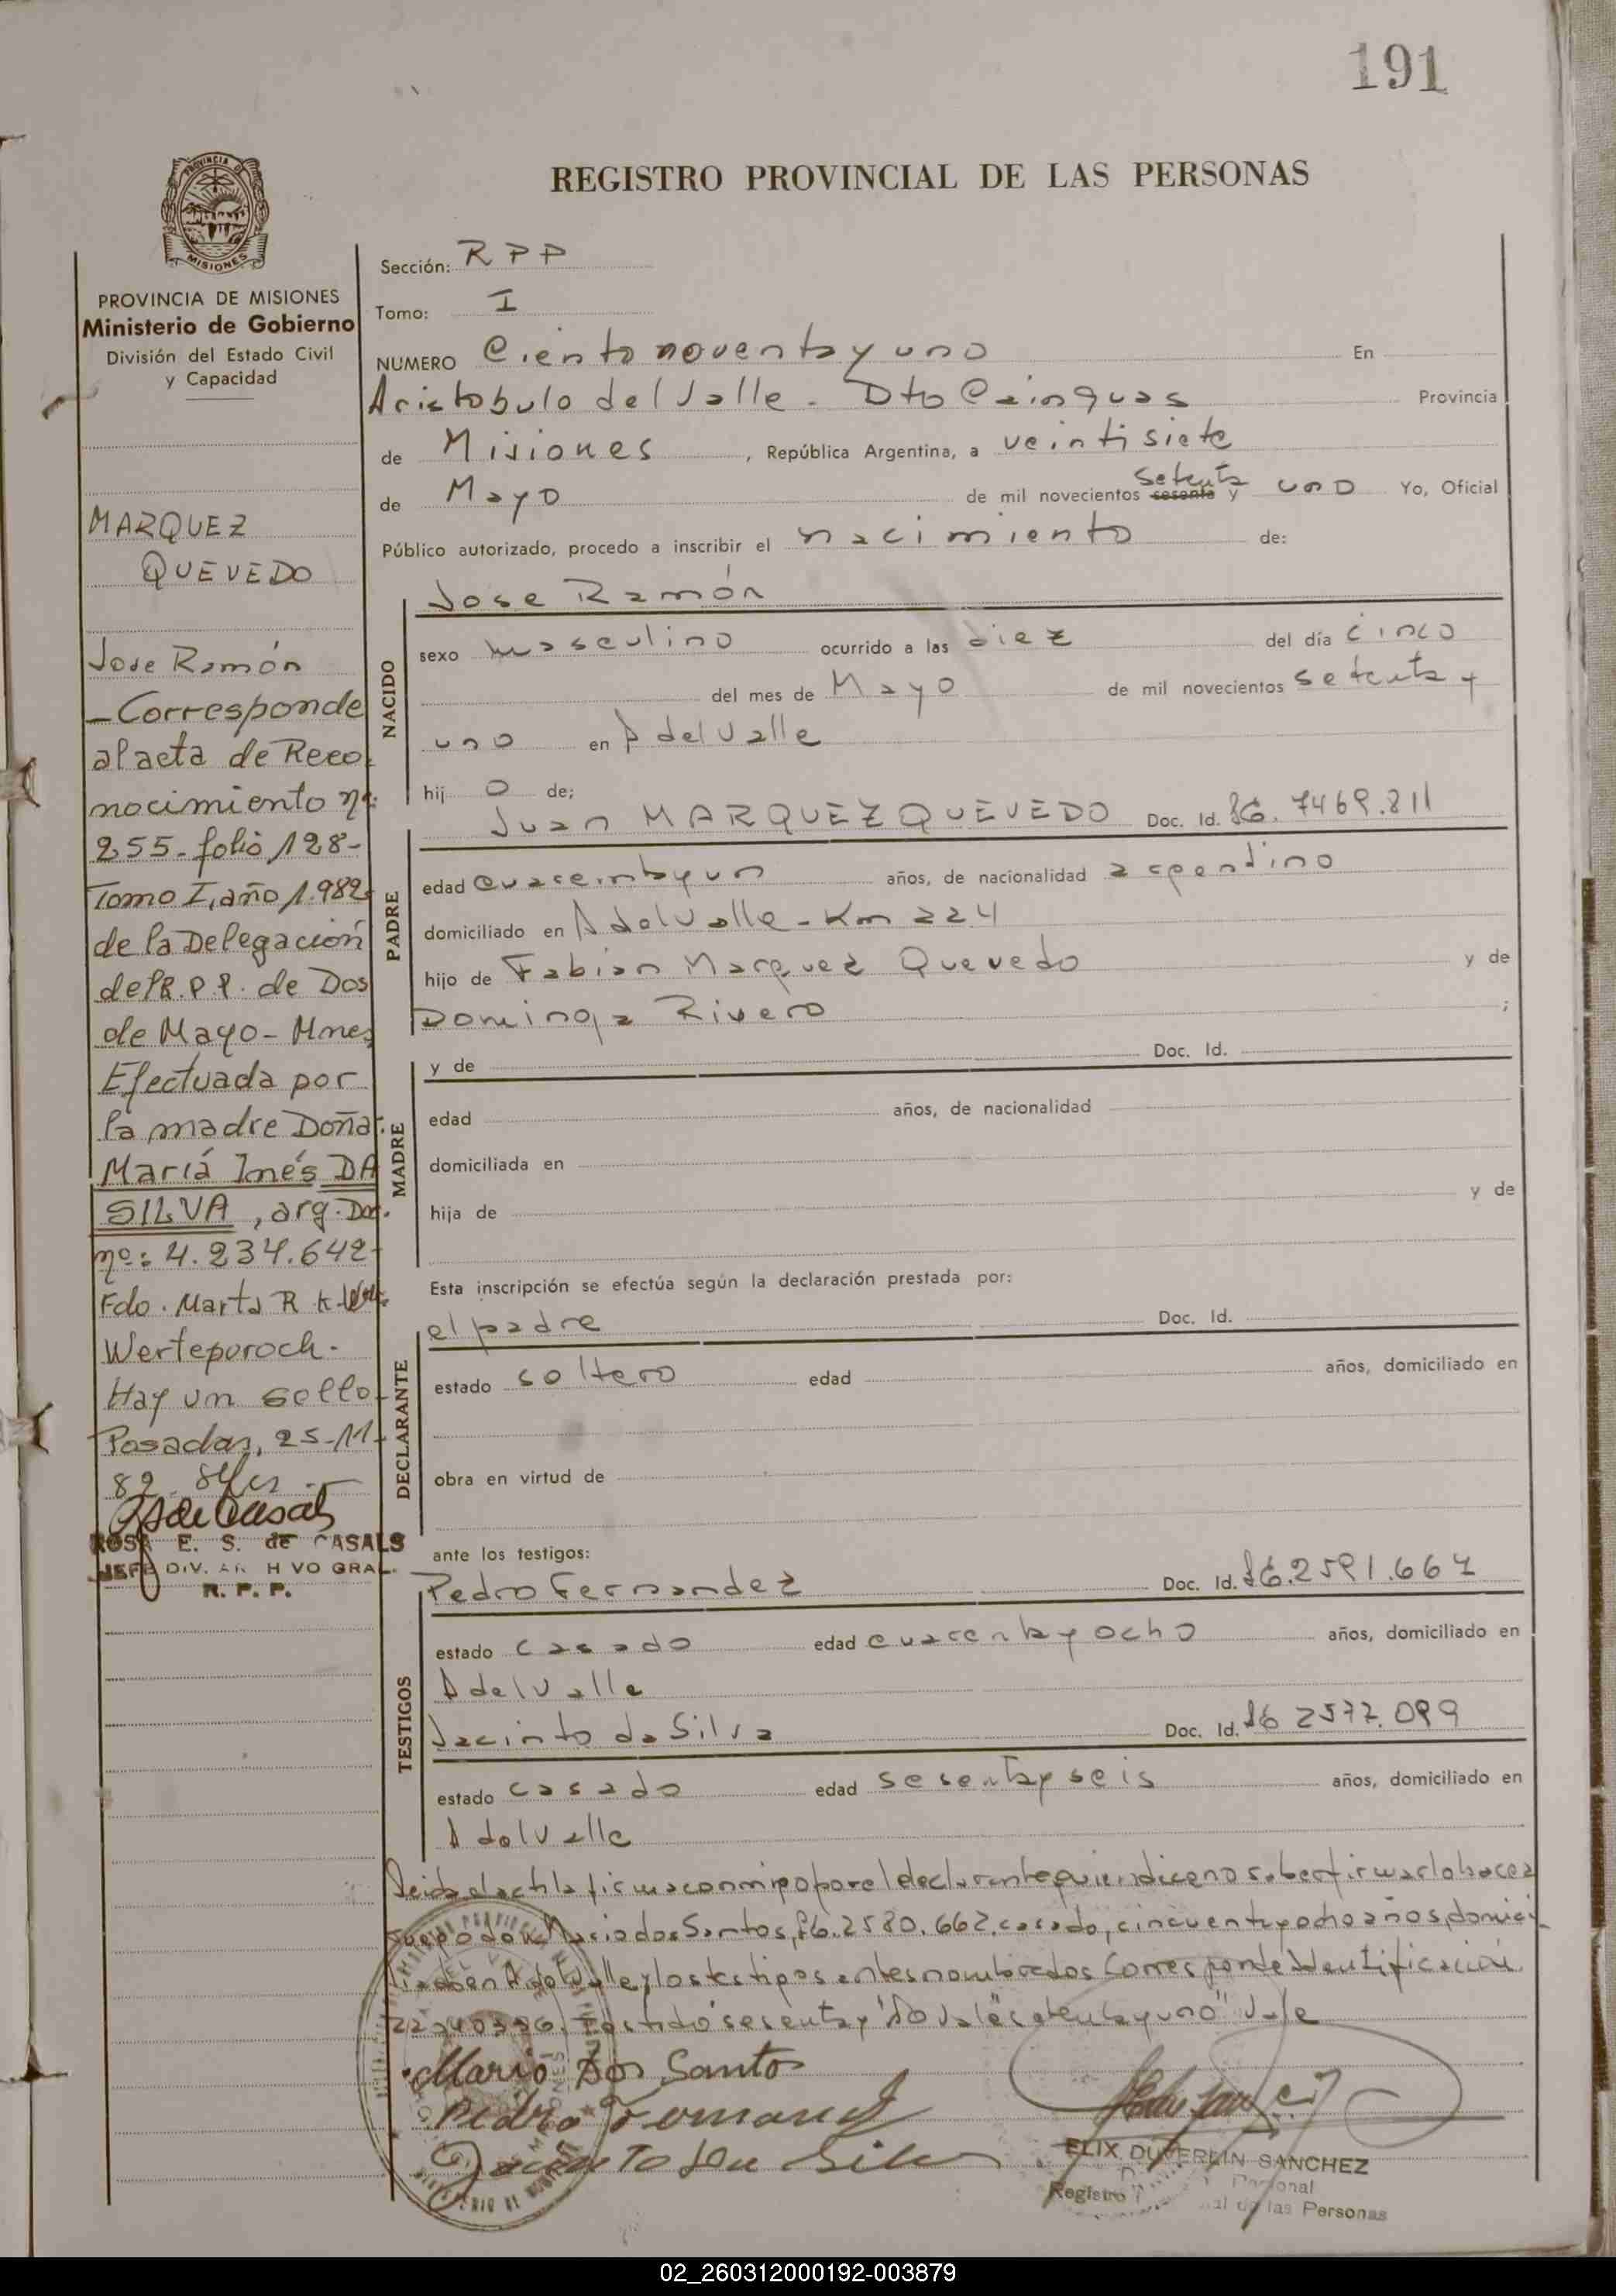 191
PROVINCIA DE MISIONES
REGISTRO PROVINCIAL DE LAS PERSONAS
PROVINCIA DE MISIONES
Ministerio de Gobierno
División del Estado Civil
y Capacidad
MARQUEZ
QUEVEDO
Jose Ramón
- Corresponde
al acta de Reco
nocimiento nº:
255 - folio 128 -
Tomo I, año 1.982,
de la Delegación
del R.P.P. de Dos
de Mayo - Mnes,
Efectuada por
la madre Doña:
María Inés DA
SILVA, arg. Doc.
nº: 4.234.642 -
Fdo. Marta R K.
Werteporoch.
Hay un sello
Posadas, 25-11-
82.
ROSA E. S. de CASALS
JEFE DIV. ARCHIVO GRAL.
R. P. P.
Sección: RPP
Tomo: I
NUMERO Ciento noventa y uno En
Aristobulo del Valle - Dto Cainguas Provincia
de Misiones, República Argentina, a veintisiete
de Mayo de mil novecientos sesenta setenta y uno Yo, Oficial
Público autorizado, procedo a inscribir el nacimiento de:
NACIDO
Jose Ramón
sexo masculino ocurrido a las diez del día cinco
del mes de Mayo de mil novecientos setenta y
uno en A del Valle
hij o de;
PADRE
Juan MARQUEZ QUEVEDO Doc. Id. 7469.811
edad cuarenta y un años, de nacionalidad argentino
domiciliado en A del Valle - Km 224
hijo de Fabian Marquez Quevedo y de
Dominga Rivero ;
MADRE
y de Doc. Id.
edad años, de nacionalidad
domiciliada en
hija de y de
Esta inscripción se efectúa según la declaración prestada por:
DECLARANTE
el padre Doc. Id.
estado soltero edad años, domiciliado en
obra en virtud de
ante los testigos:
TESTIGOS
Pedro Fernandez Doc. Id. 2591.667
estado casado edad cuarenta y ocho años, domiciliado en
A del Valle
Jacinto da Silva Doc. Id. 2577.099
estado casado edad sesenta y seis años, domiciliado en
A del Valle
Leida el acta la firma conmigo por el declarante quien dice no saber firmar lo hace a
su pedido Mario dos Santos, 2580.662, casado, cincuenta y ocho años, domici
liado en A del Valle y los testigos antes nombrados Corresponde Identificación
22240396. Testado "sesenta y" No vale "setenta y uno" Vale
Mario Dos Santos
Pedro Fernandez
Jacinto da Silva
FELIX DUVERLIN SANCHEZ
Registro Provincial de las Personas
02_260312000192-003879